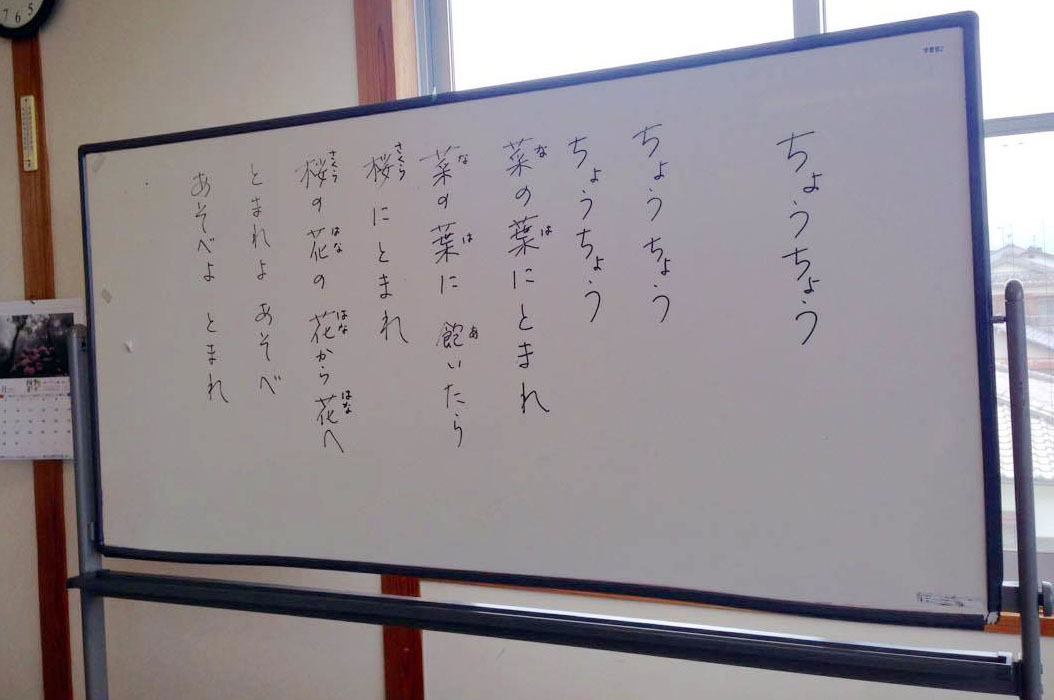 ちょうちょう
ちょう ちょう
ちょうちょう
菜の葉にとまれ
菜の葉に 飽いたら
桜にとまれ
桜の花の 花から花へ
とまれよ あそべ
あそべよ とまれ
な は
な は あ
さくら
さくら はな はな はな
7 6 5